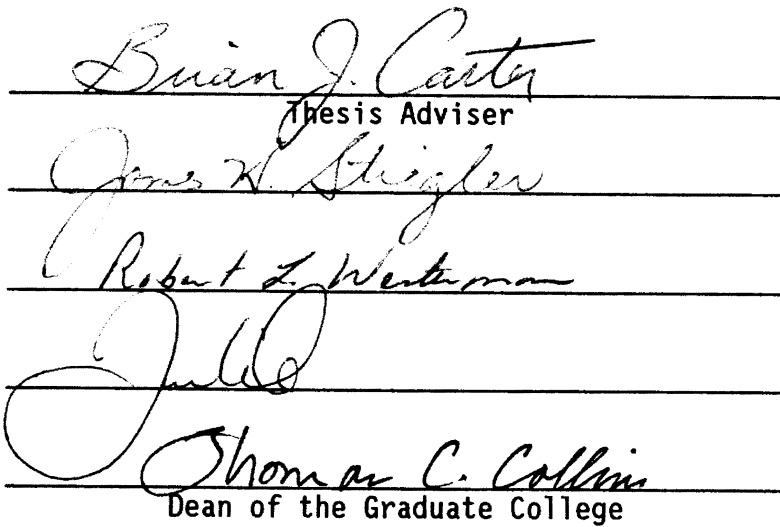 Brian J. Carter
Thesis Adviser
James H. Stiegler
Robert L. Westerman
Thomas C. Collins
Dean of the Graduate College